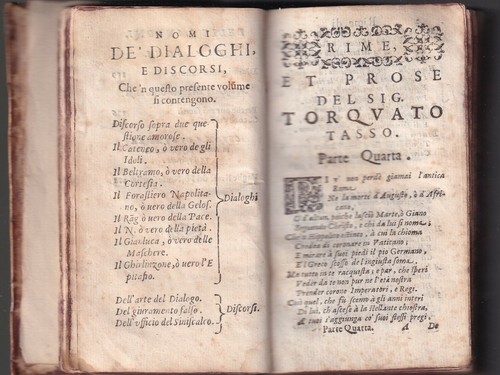 NOMI
DE' DIALOGHI,
E DISCORSI,
Che 'n questo presente volume
si contengono.
Discorso sopra due que-
stione amorose.
Il Cateneo, ò vero degli
Idoli.
Il Beltramo, ò vero della
Cortesia.
Il Forastiero Napolita-
no, ò uero della Gelos.
Il Rãg. ò uero della Pace.
Il N. ò vero della pietà.
Il Gianluca, ò vero delle
Maschere.
Il Ghialinzone, ò uero l'E
pitafio.
Dialoghi
Dell'arte del Dialogo.
Del giuramento falso.
Dell'ufficio del Siniscalco.
Discorsi.
RIME,
ET PROSE
DEL SIG.
TORQVATO
TASSO.
Parte Quarta.
non perdè giamai l'antica
Roma
Ne la morte d'Augusto, ò d'Afri-
cano,
D'altrui, poiche lasciò Marte, ò Giano
Seguendo Christo, e chi da lui si noma;
estinte, à cui la chioma
Credea di coronare in Vaticano;
E mirare à suoi piedi il pio Germano,
E'l Greco stesso de l'ingiusta soma.
Ma tutto in te racquista; e par, che speri
Veder da te non pur ne l'età nostra
Prender corone Imperatori, e Regi.
Ma quel, che fù scemo à gli anni interi
Di lui, ch'asceso à la stellante chiostra,
A cui s'aggiunga co' suoi stessi pregi.
Parte Quarta. A De